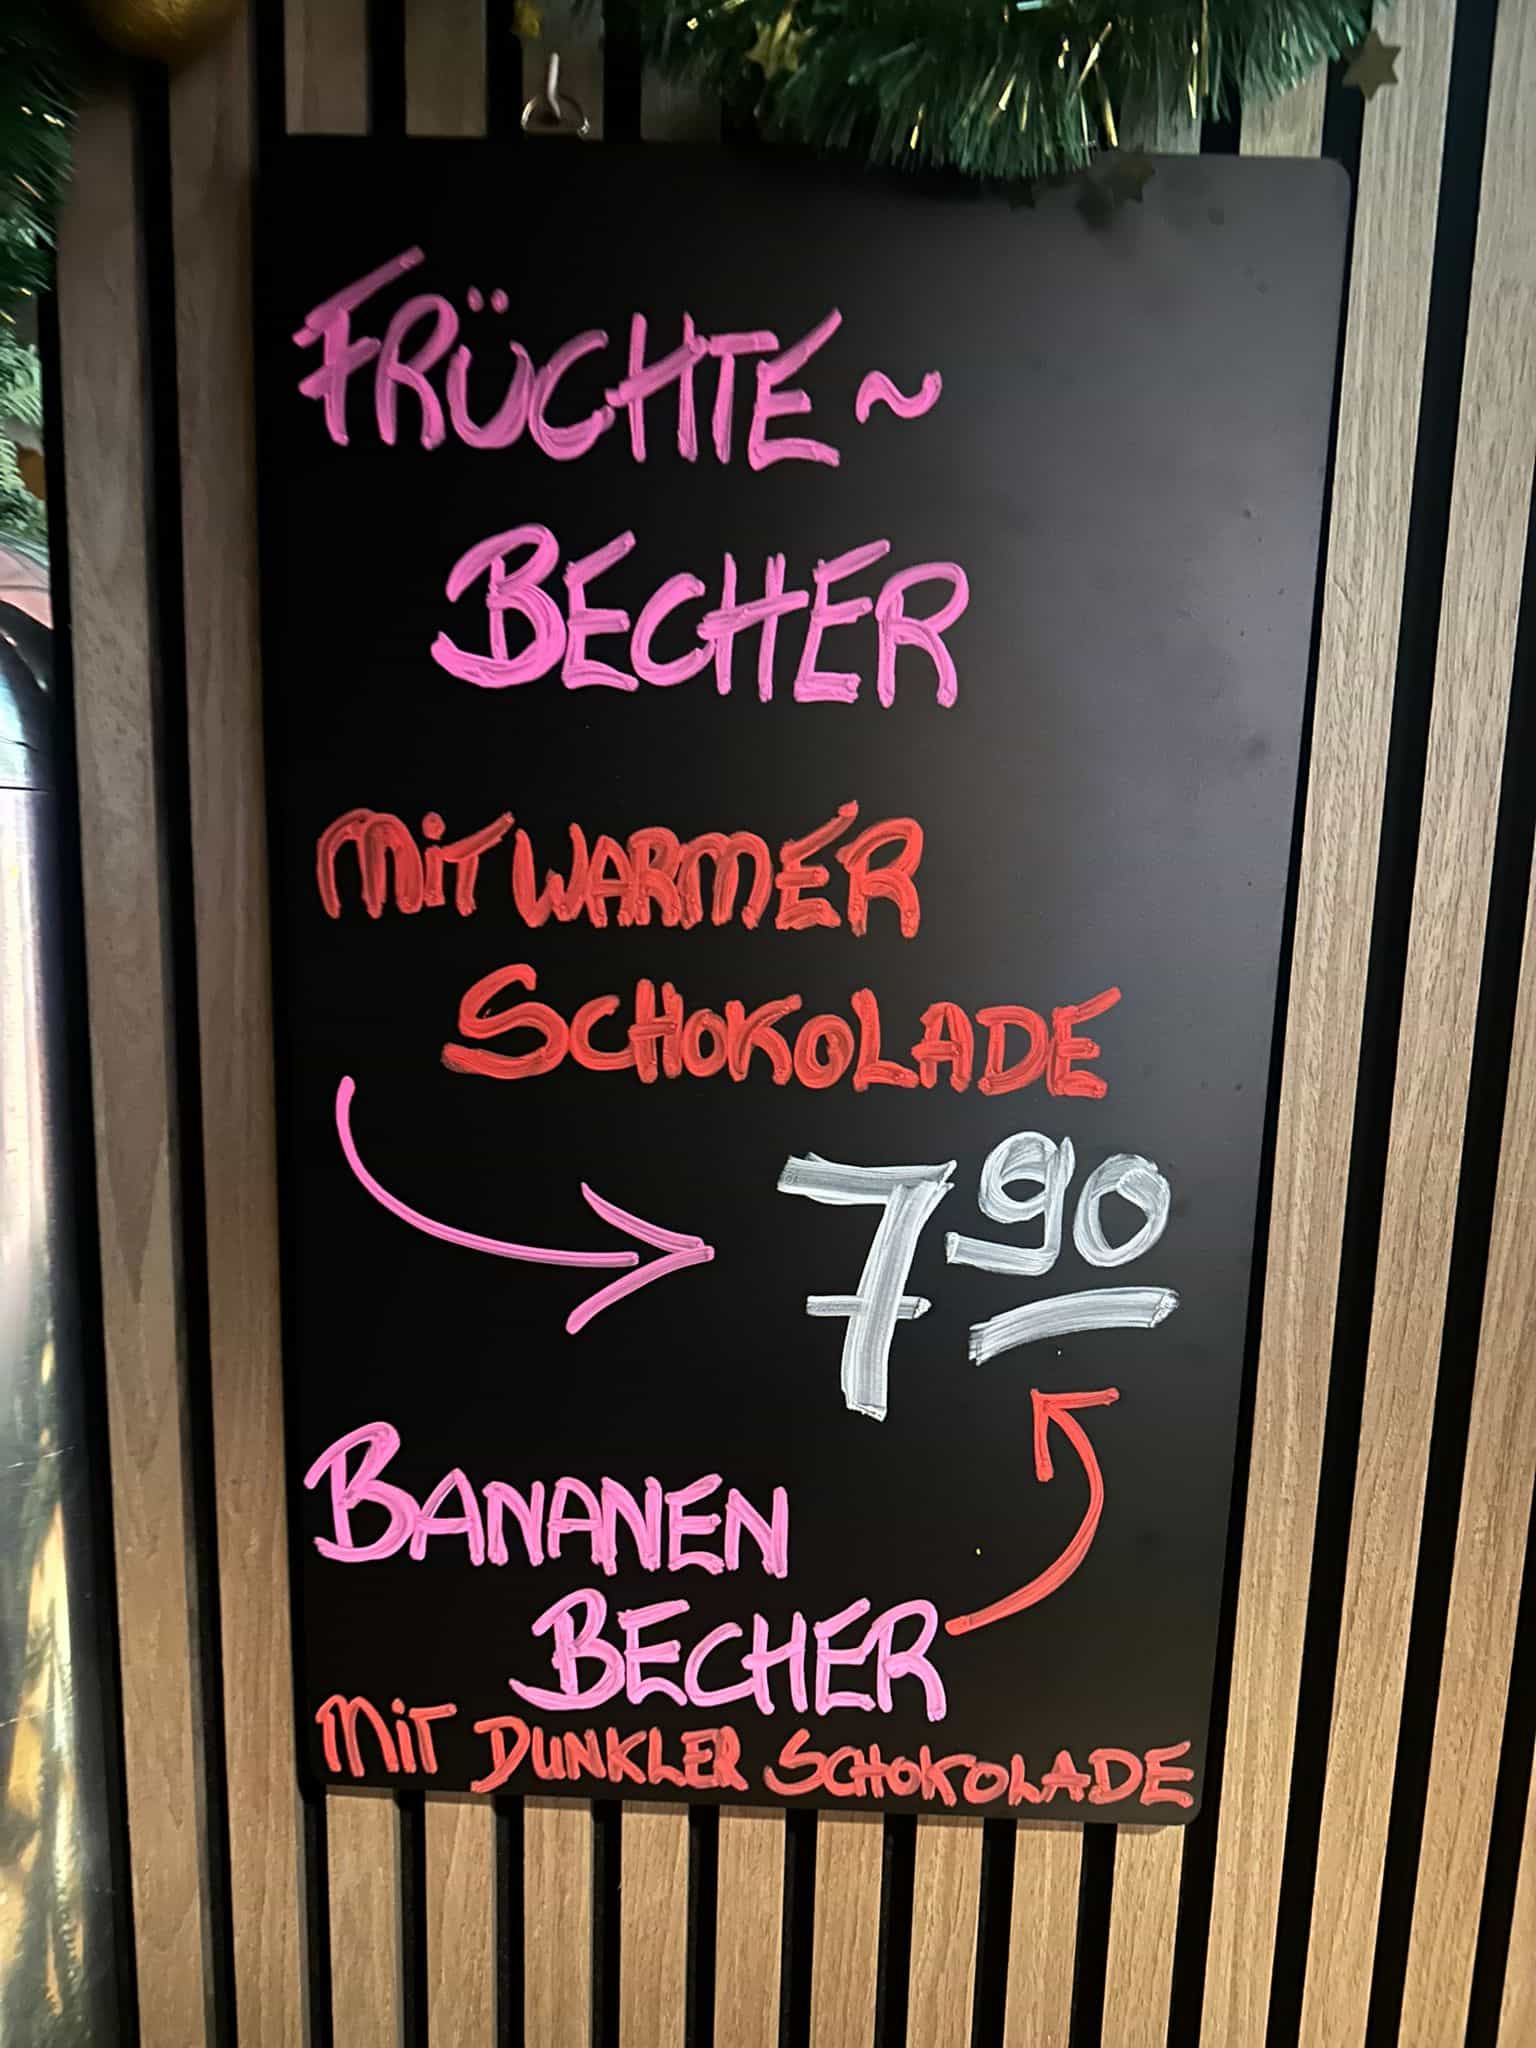 FRÜCHTE~
BECHER
MIT WARMER
SCHOKOLADE
7 90
BANANEN
BECHER
MIT DUNKLER SCHOKOLADE